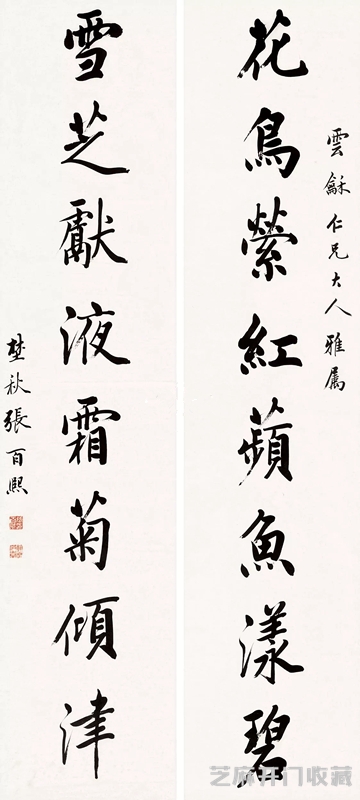 雲龢仁兄大人雅属
花鳥縈紅蘋魚漾碧
雪芝獻液霜菊傾津
埜秋張百熙
芝麻开门收藏